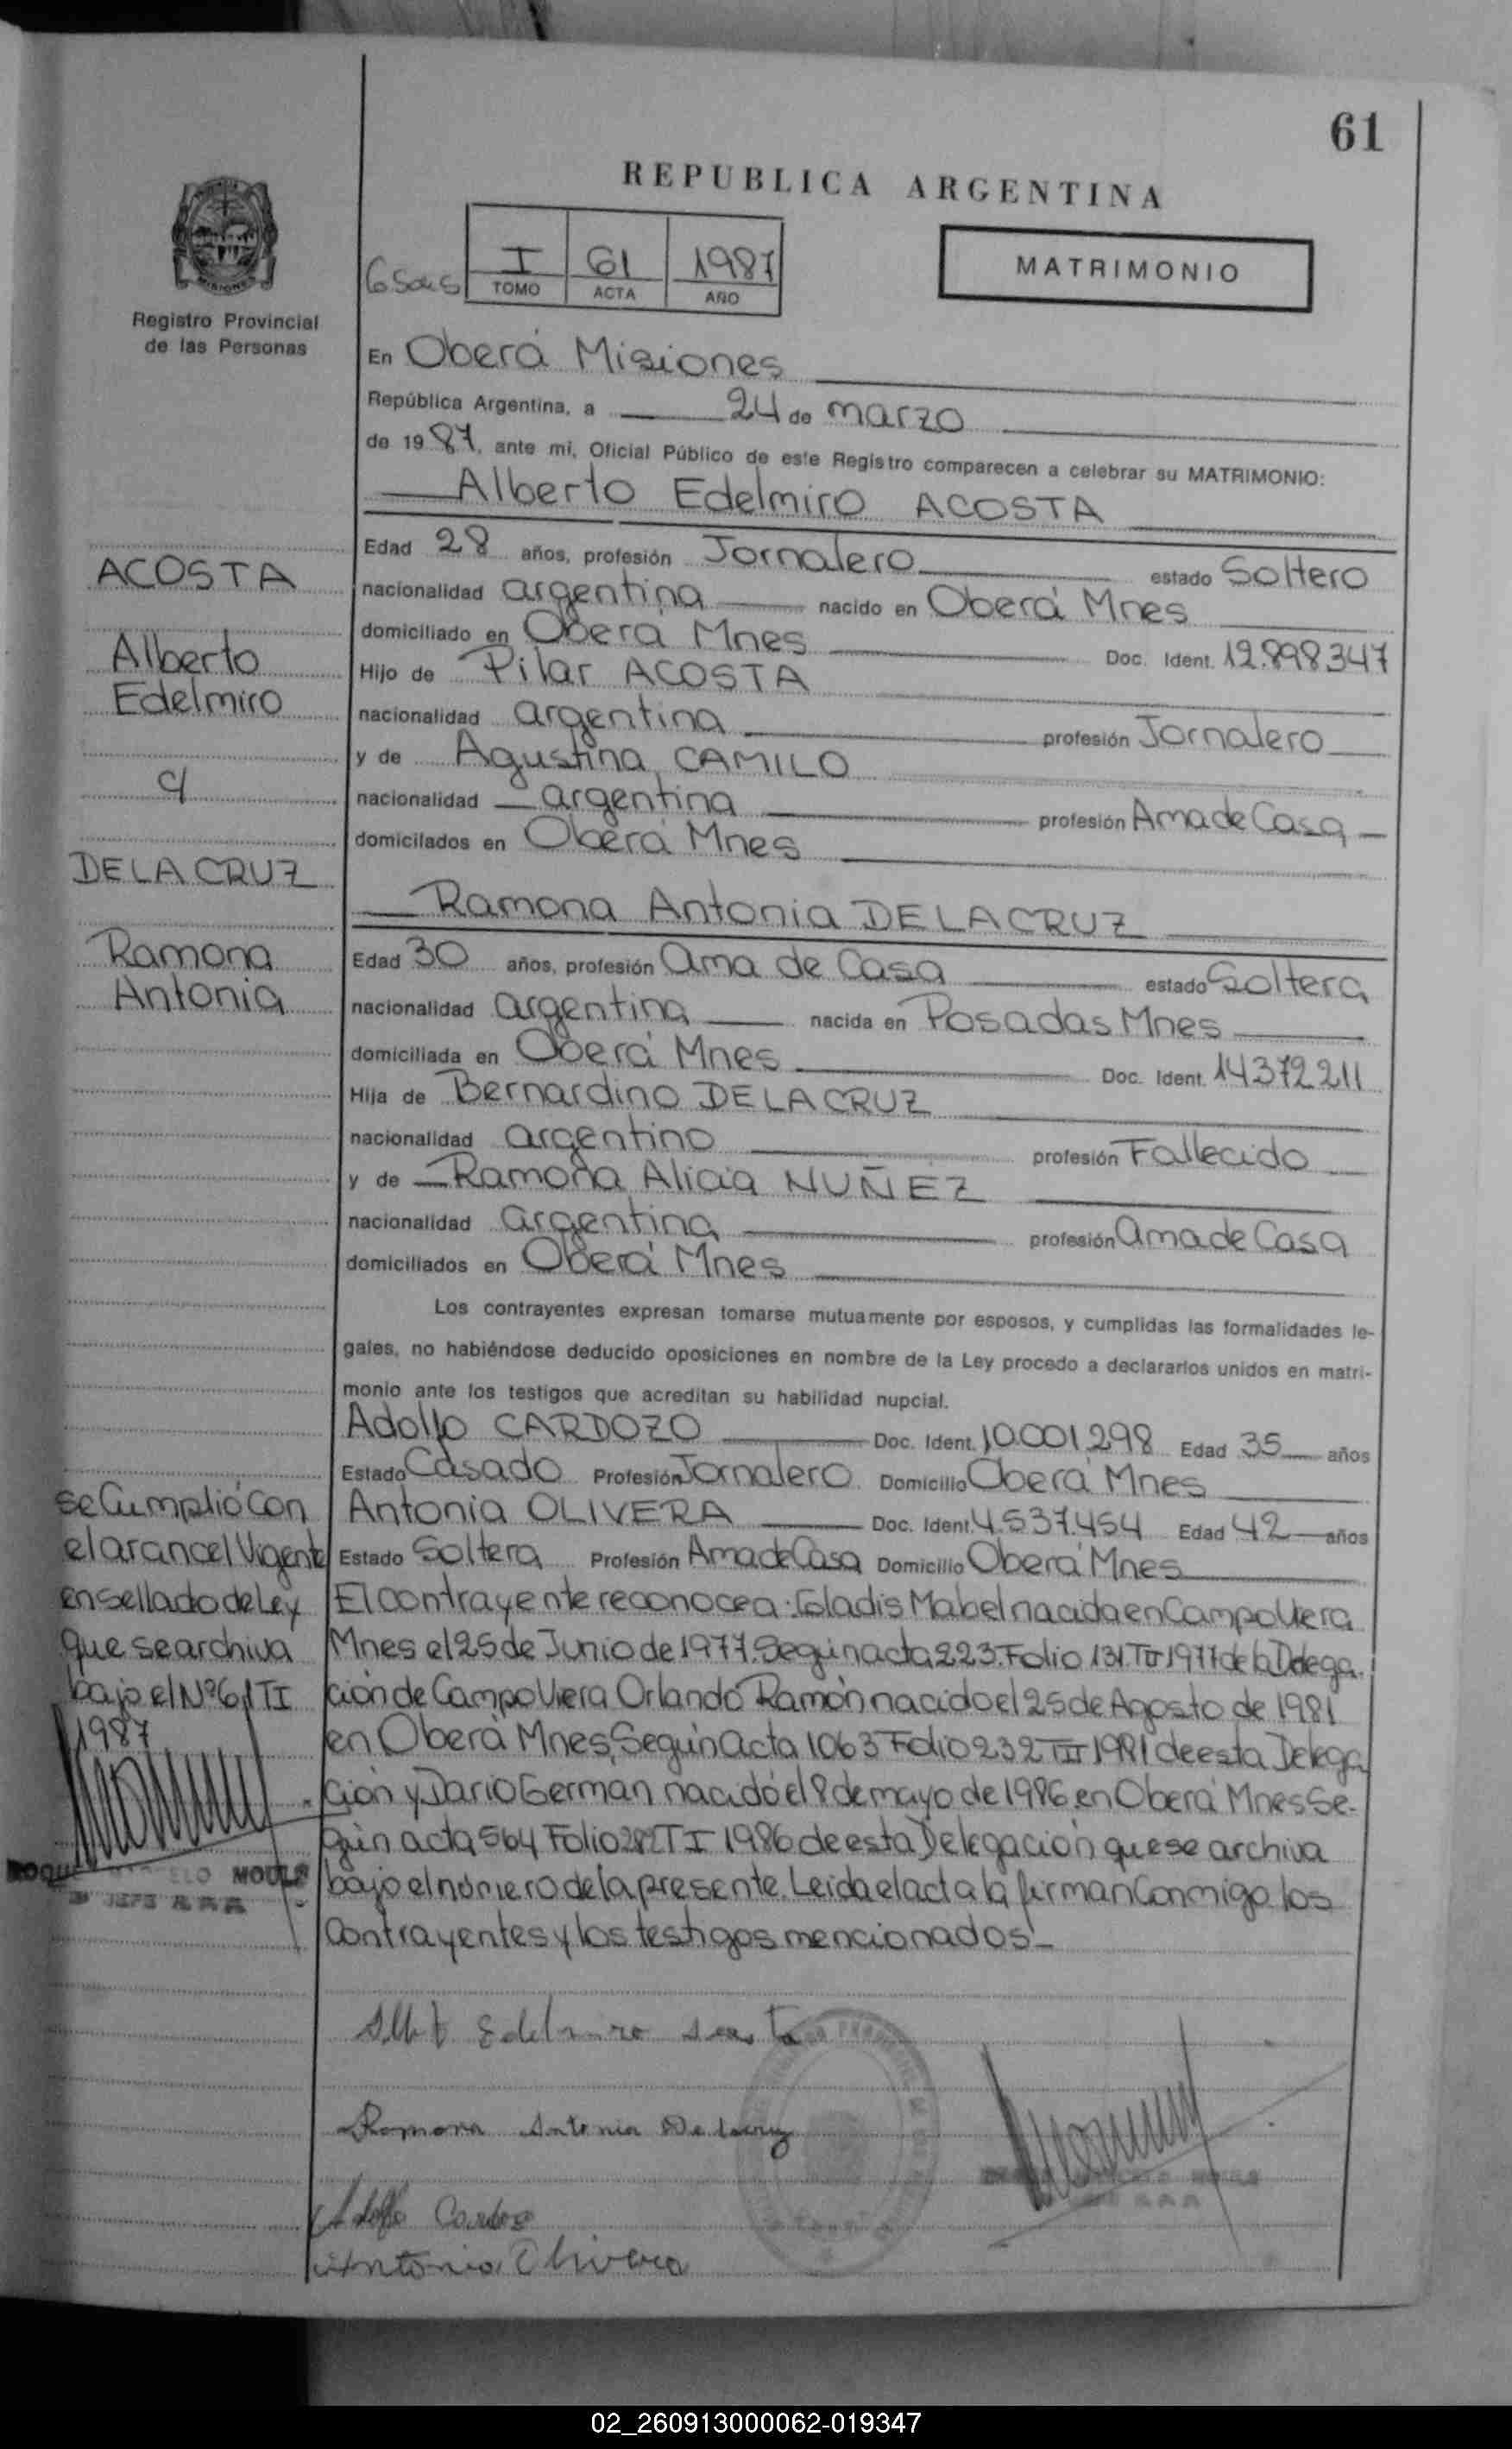 61
REPUBLICA ARGENTINA
I 61 1987
TOMO ACTA AÑO
MATRIMONIO
MISIONES
Registro Provincial
de las Personas
En Oberá Misiones
República Argentina, a 24 de marzo
de 1987, ante mi, Oficial Público de este Registro comparecen a celebrar su MATRIMONIO:
Alberto Edelmiro ACOSTA
Edad 28 años, profesión Jornalero estado Soltero
nacionalidad argentina nacido en Oberá Mnes
domiciliado en Oberá Mnes Doc. Ident. 12.898.347
Hijo de Pilar ACOSTA
nacionalidad argentina profesión Jornalero
y de Agustina CAMILO
nacionalidad argentina profesión Ama de Casa
domicilados en Oberá Mnes
Ramona Antonia DELACRUZ
Edad 30 años, profesión ama de Casa estado Soltera
nacionalidad argentina nacida en Posadas Mnes
domiciliada en Oberá Mnes Doc. Ident. 14372211
Hija de Bernardino DELACRUZ
nacionalidad argentino profesión Fallecido
y de Ramona Alicia NUÑEZ
nacionalidad argentina profesión ama de Casa
domiciliados en Oberá Mnes
Los contrayentes expresan tomarse mutuamente por esposos, y cumplidas las formalidades le-
gales, no habiéndose deducido oposiciones en nombre de la Ley procedo a declararlos unidos en matri-
monio ante los testigos que acreditan su habilidad nupcial.
Adolfo CARDOZO Doc. Ident. 10.001.298 Edad 35 años
Estado Casado Profesión Jornalero Domicilio Oberá Mnes
Antonia OLIVERA Doc. Ident. 4.537.454 Edad 42 años
Estado Soltera Profesión Ama de Casa Domicilio Oberá Mnes
El contrayente reconoce a: Gladis Mabel nacida en Campo Viera
Mnes el 25 de Junio de 1977. Según acta 223. Folio 131. TII 1977 de la Delega-
ción de Campo Viera Orlando Ramón nacido el 25 de Agosto de 1981
en Oberá Mnes, Según Acta 1063 Folio 232 TIII 1981 de esta Delega
ción y Dario German nacido el 8 de mayo de 1986 en Oberá Mnes Se-
gún acta 564 Folio 282 TI 1986 de esta Delegación que se archiva
bajo el número de la presente. Leida el acta la firman Conmigo los
Contrayentes y los testigos mencionados.-
ACOSTA
Alberto
Edelmiro
c/
DELACRUZ
Ramona
Antonia
Se Cumplió Con
el arancel Vigente
en sellado de Ley
que se archiva
bajo el Nº 61 TI
1987
Edelmiro
Ramona Antonia Delacruz
Adolfo Cardozo
Antonia Olivera
02_260913000062-019347